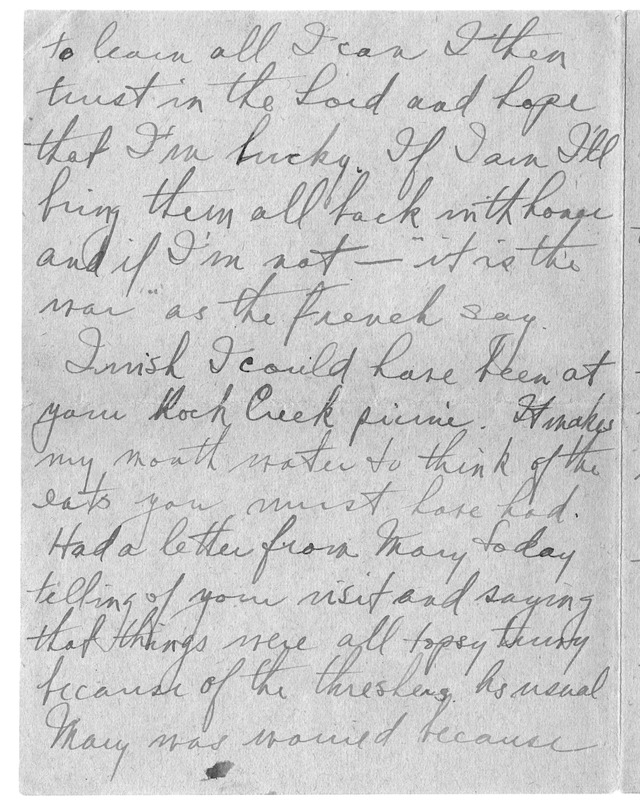 to learn all I can I then
trust in the Lord and hope
that I'm lucky. If I am I'll
bring them all back with honor
and if I'm not — "it is the
war" as the French say.
I wish I could have been at
your Rock Creek picnic. It makes
my mouth water to think of the
eats you must have had.
Had a letter from Mary today
telling of your visit and saying
that things were all topsy turvy
because of the threshers. As usual
Mary was worried because